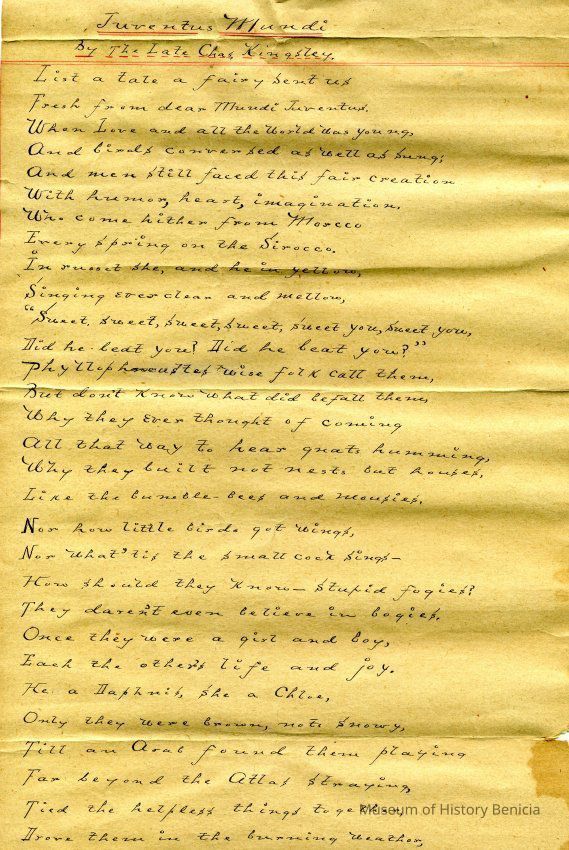 Juventus Mundi
By The Late Chas. Kingsley.
List a tale a fairy sent us
Fresh from dear Mundi Juventus.
When Love and all the World was young,
And birds conversed as well as sung;
And men still faced this fair creation
With humor, heart, imagination.
Who come hither from Morocco
Every spring on the Sirocco.
In russet she, and he in yellow,
Singing ever clear and mellow,
"Sweet, sweet, sweet, sweet, sweet you, sweet you,
Did he beat you? Did he beat you?"
wise folk call them,
But don't Know what did befall them,
Why they ever thought of coming
All that way to hear gnats humming,
Why they built not nests but houses,
Like the bumble-bees and mousies.
Nor how little birds got wings,
Nor what 'tis the small cock sings—
How should they Know— stupid fogies?
They daren't even believe in bogies.
Once they were a girl and boy,
Each the other's life and joy.
He a Daphnis, she a Chloe,
Only they were brown, not snowy,
Till an Arab found them playing
Far beyond the Atlas straying,
Tied the helpless things together,
Drove them in the burning weather,
Museum of History Benicia